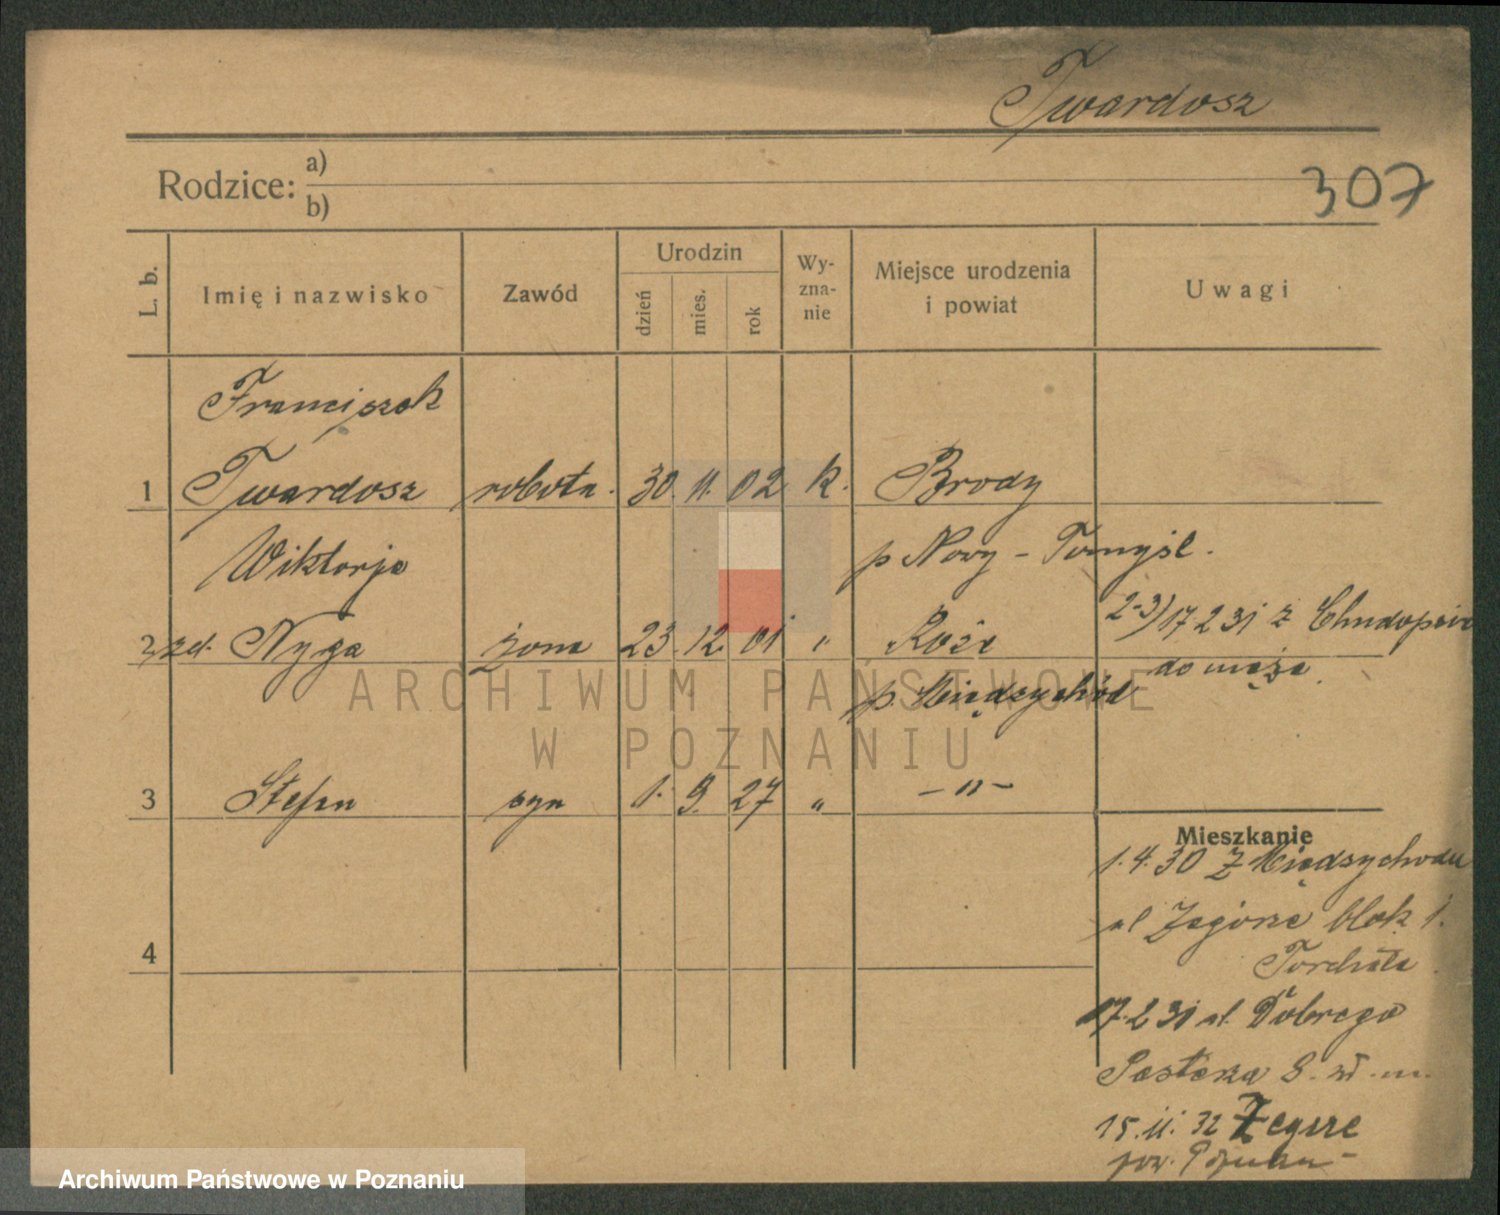 Twardosz
Rodzice: a)
b)
307
L. b.
Imię i nazwisko
Zawód
Urodzin
dzień
mies.
rok
Wy-
zna-
nie
Miejsce urodzenia
i powiat
Uwagi
Franciszek
1 Twardosz robotn. 30. 11. 02 k. Brody
Wiktorja p Nowy - Tomyśl.
2 zd. Nyga żona 23. 12. 01 " Roże
2-3) 17 2 31 z
do męża.
p. Międzychód
3 Stefan syn 1. 9. 27 " - " -
4
Mieszkanie
1. 4. 30 z Międzychodu
ul Zagórze blok 1.
17. 2 31 ul. Dobrego
Pasterza 8.
15. 11. 32
pow. Poznań
ARCHIWUM PAŃSTWOWE
W POZNANIU
Archiwum Państwowe w Poznaniu